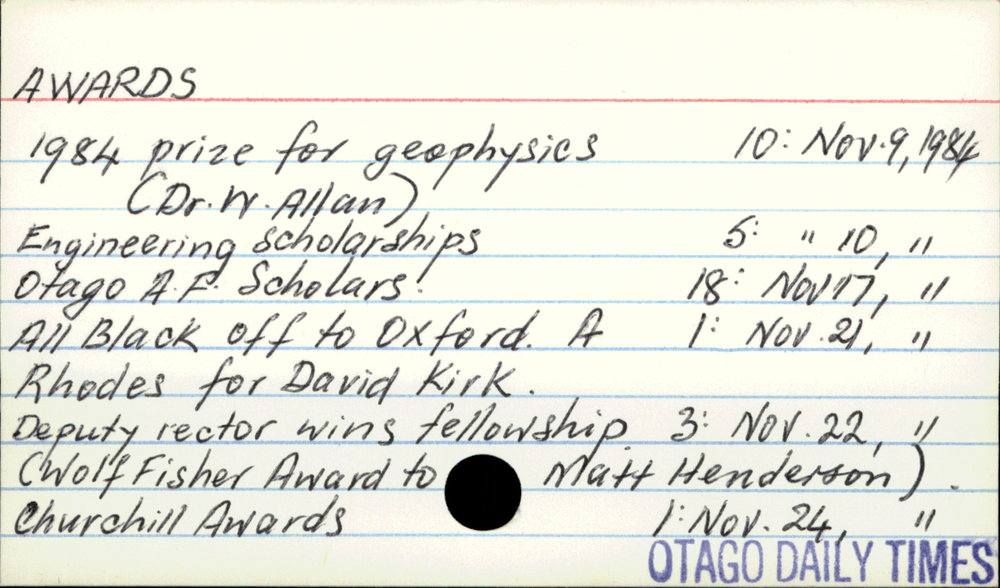 AWARDS
1984 prize for geophysics 10: Nov. 9, 1984
(Dr. W. Allan)
Engineering scholarships 5: " 10, "
Otago A.F. Scholars. 18: Nov 17, "
All Black off to Oxford. A 1: Nov. 21, "
Rhodes for David Kirk.
Deputy rector wins fellowship 3: Nov. 22, "
(Wolf Fisher Award to Matt Henderson).
Churchill Awards 1: Nov. 24, "
OTAGO DAILY TIMES